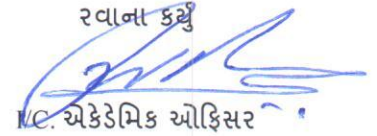 રવાના કર્યું
I/C. એકેડેમિક ઓફિસર